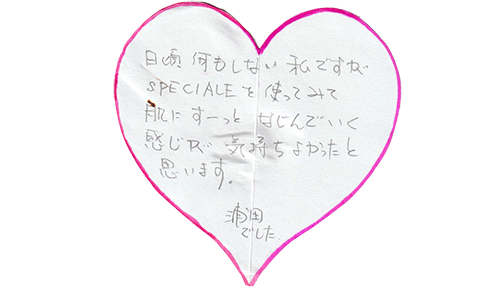 日頃 何もしない 私ですが
SPECIALEを 使ってみて
肌に すーっと なじんでいく
感じが 気持ちよかったと
思います。
浦田
でした